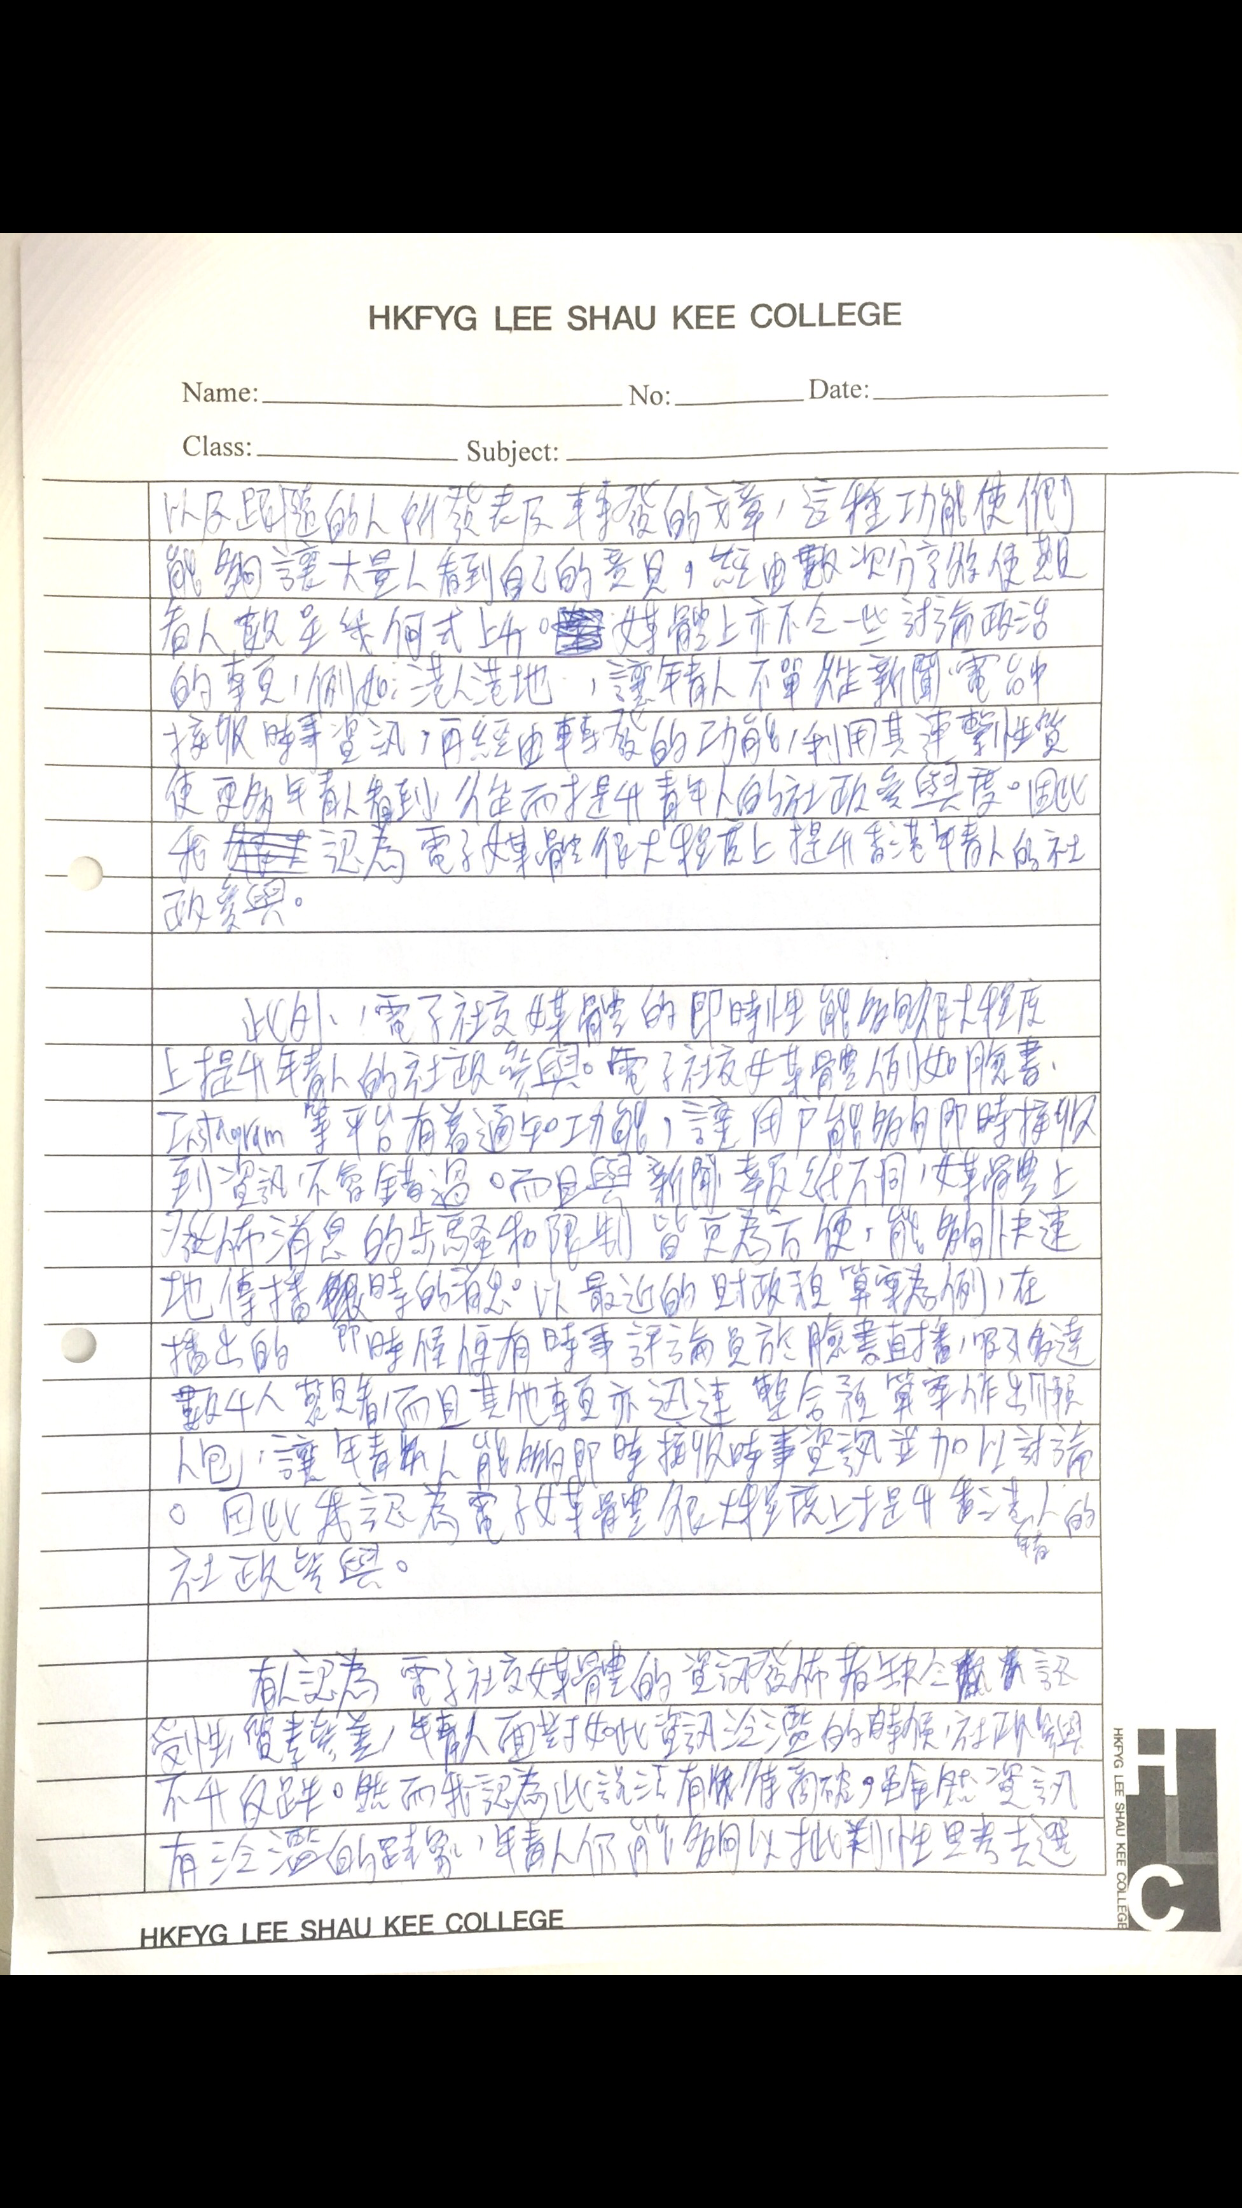 HKFYG LEE SHAU KEE COLLEGE
Name: No: Date:
Class: Subject:
以及跟隨的人所發表及轉發的文章，這種功能使他們
能夠讓大量人看到自己的意見，經由數次分享後使觀
看人數呈幾何式上升。媒體上亦不乏一些討論政治
的專頁，例如：港人港地，讓年青人不單從新聞、電台中
接收時事資訊，再經由轉發的功能，利用其連繫性質
使更多年青人看到從而提升青年人的社政參與度。因此
我認為電子媒體很大程度上提升香港年青人的社
政參與。
此外，電子社交媒體的即時性能夠很大程度
上提升年青人的社政參與。電子社交媒體例如臉書、
Instagram 等平台有着通知功能，讓用戶能夠即時接收
到資訊，不容錯過。而且與新聞、報紙不同，媒體上
發佈消息的步驟和限制皆更為方便，能夠快速
地傳播時的消息。以最近的財政預算案為例，在
播出的即時候便有時事評論員於臉書直播，吸引多達
數千人觀看，而且其他專頁亦迅速整合預算案作出懶
人包，讓年青人能夠即時接收時事資訊並加以討論
。因此我認為電子媒體很大程度上提升香港年青人的
社政參與。
有人認為電子社交媒體的資訊發佈者缺乏認
受性，質素參差，年青人面對如此資訊泛濫的時候，社政參與
不升反跌。然而我認為此說法有商破，雖然資訊
有泛濫的跡象，年青人仍能夠以批判性思考去選
HKFYG LEE SHAU KEE COLLEGE
HLC
HKFYG LEE SHAU KEE COLLEGE